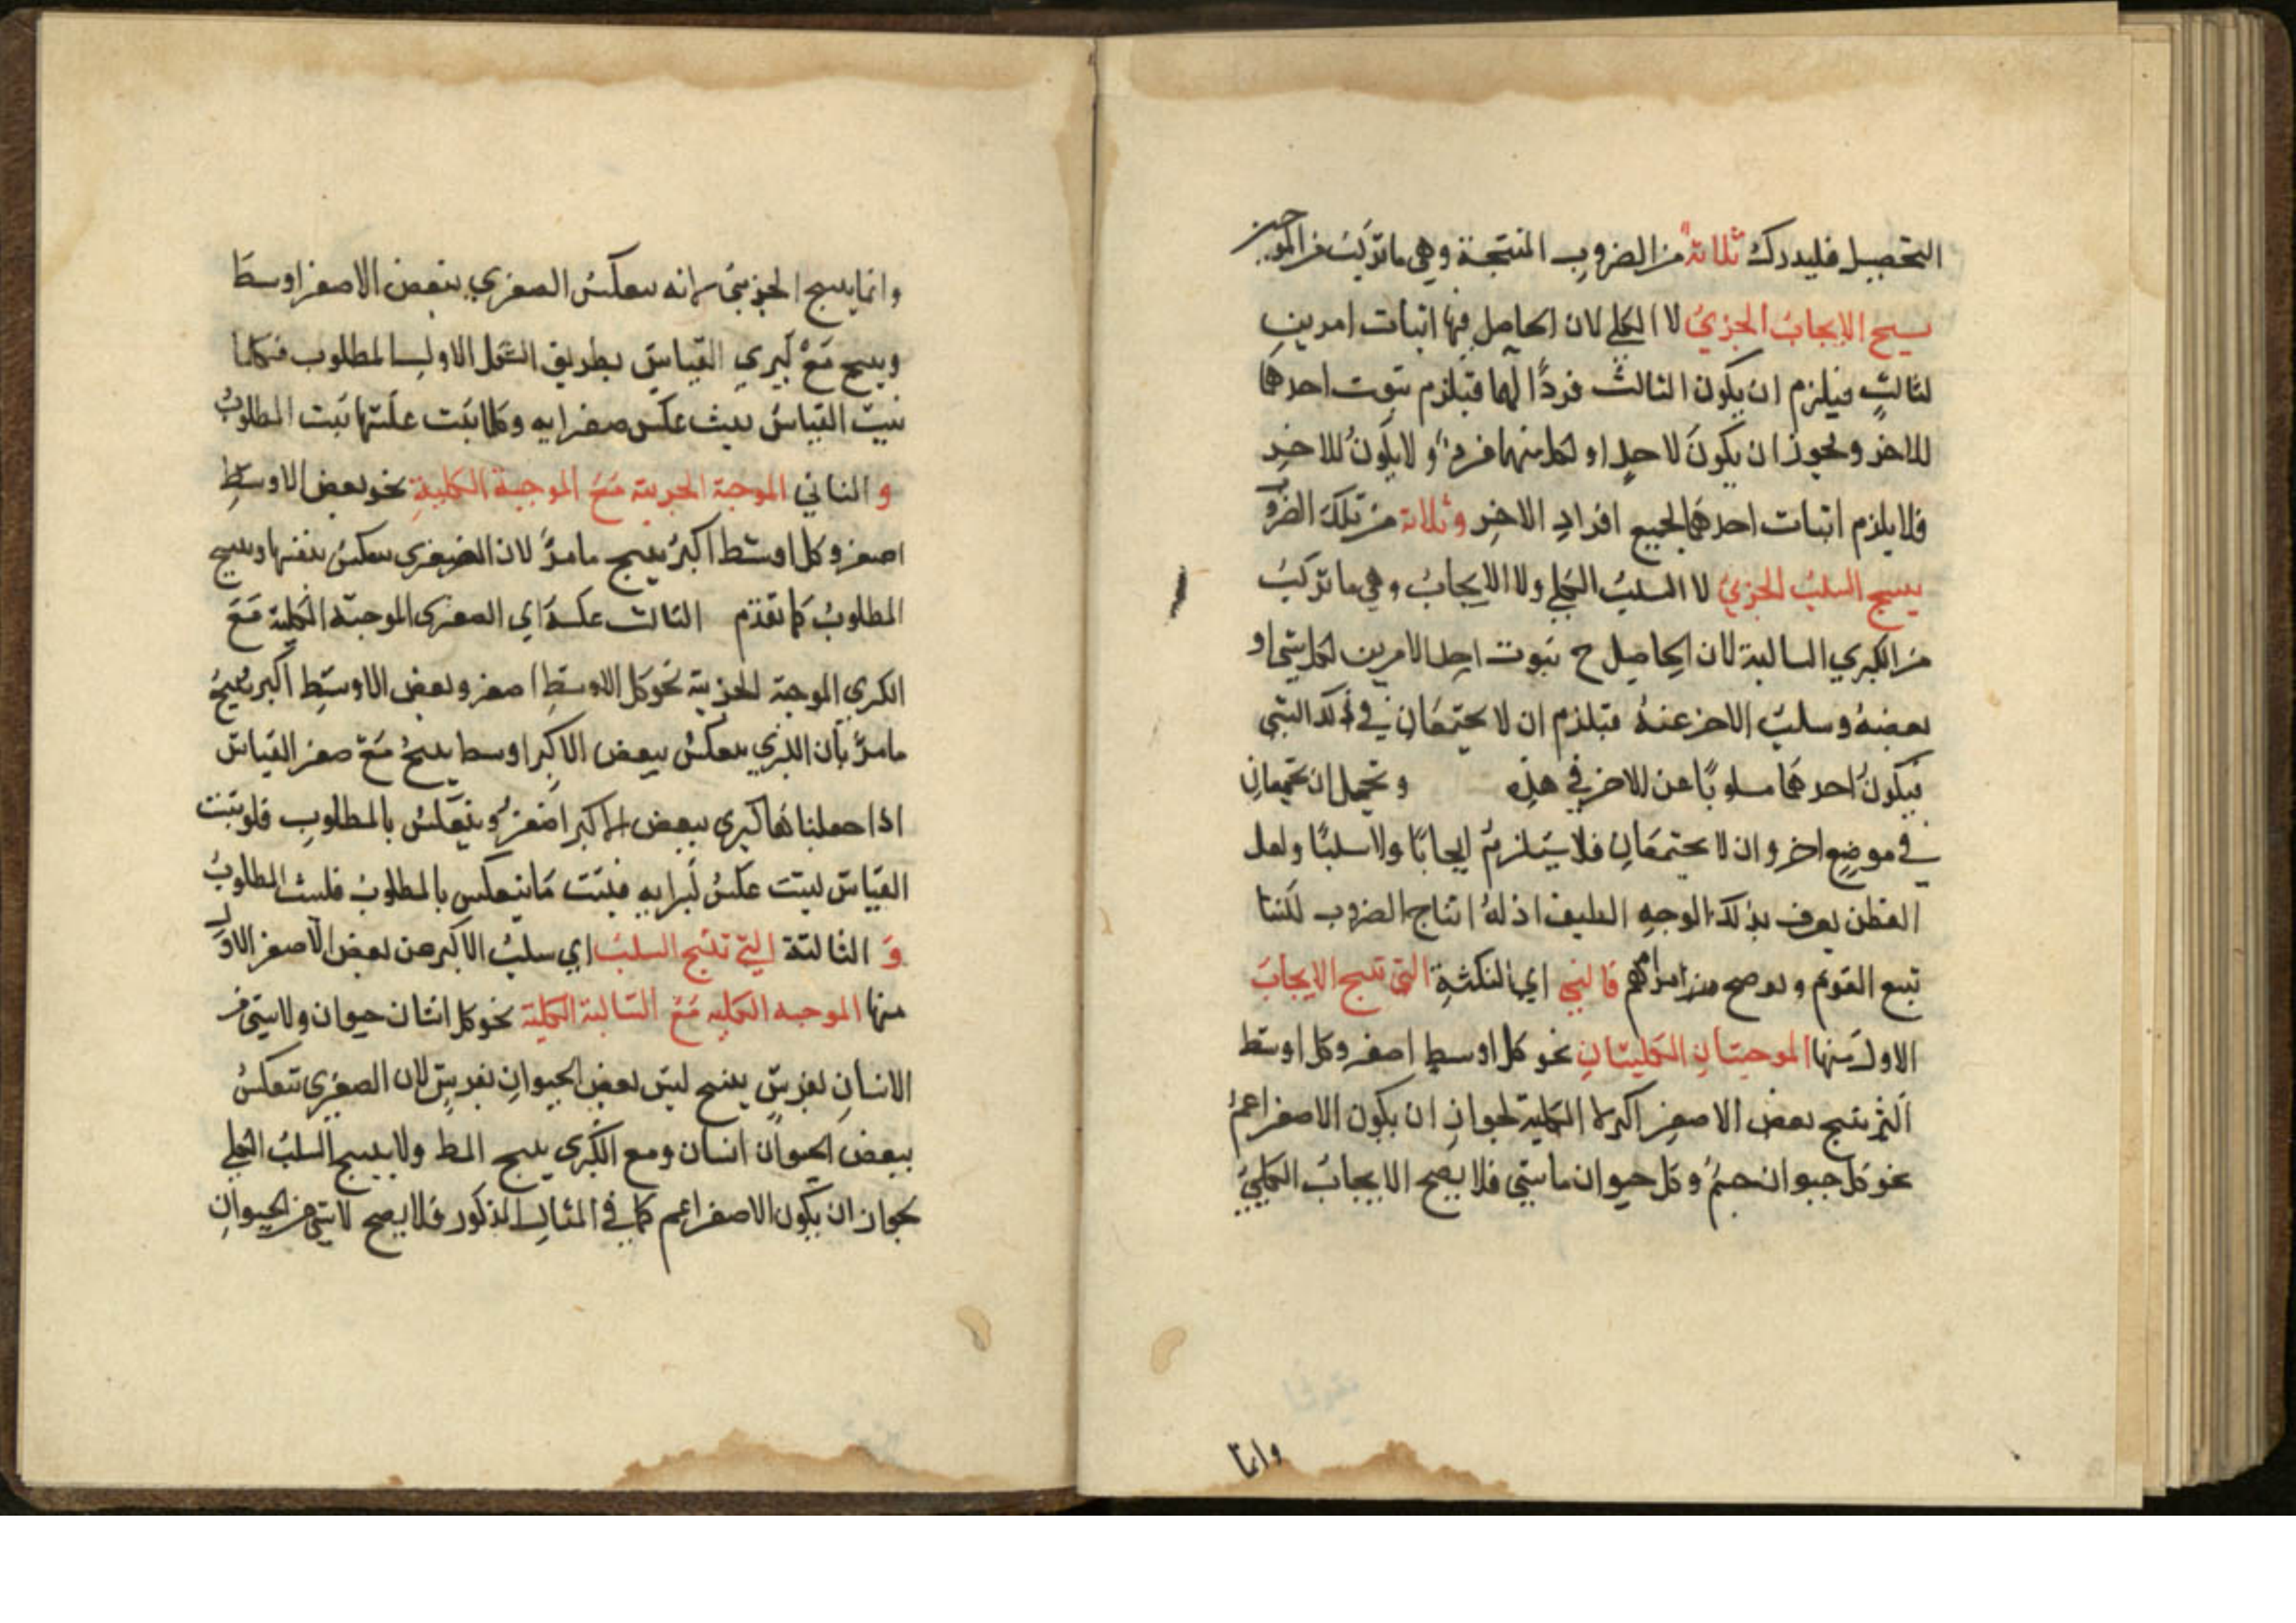 التحصيل فليدرك ثلاثة من الضروب المنتجة وهي ما تركبت من الموجبتين
ينتج الإيجاب الجزئي لا الكلي لان الحاصل فيها اثبات امرين
لثالث فيلزم ان يكون الثالث فردًا لهما فيلزم ثبوت احدهما
للاخر ويجوز ان يكون لاحد او لكل منهما فرد و لا يكون للاخر
فلا يلزم اثبات احدهما لجميع افراد الاخر وثلاثة من تلك الضرو
ينتج السلب الجزئي لا السلب الكلي ولا الايجاب وهي ما تركبت
من الكبري السالبة لان الحاصل ح ثبوت احد الامرين لكل شي او
بعضه وسلب الاخر عنه فيلزم ان لا يجتمعان في ذلك الشي
فيكون احدهما مسلوبًا عن للاخر في هذه ويحتمل ان يجتمعان
في موضع اخر وان لا يجتمعان فلا يستلزم إيجابًا ولا سلبًا ولعل
الفطن يعرف بذلك الوجه اللطيف اذ له انتاج الضروب لكننا
تبع القوم و نوضح مرامهم فالتي اي الثلاثة التي تنتج الايجاب
الاول منها الموجبتان الكليتان نحو كل اوسط اصغر وكل اوسط
اكبر ينتج بعض الاصغر اكبر لا الكلية لجواز ان يكون الاصغر اعم
نحو كل حيوان جسم وكل حيوان ماشي فلا يصح الايجاب الكلي
وانما
وانما ينتج الجزئي لانه ينعكس الصغري ببعض الاصغر اوسط
وينتج مع كبري القياس بطريق الشكل الاول المطلوب فكلما
ثبت القياس يثبت عكس صغرايه وكلما ثبت علتها ثبت المطلوب
و الثاني الموجبة الجزيية مع الموجبة الكلية نحو بعض الاوسط
اصغر وكل اوسط اكبر ينتج ما مرّ لان الصغرى ينعكس بنفسها وينتج
المطلوب كما تقدم الثالث عكسه اي الصغرى الموجبة الكلية مع
الكبري الموجبة الجزيية نحو كل الاوسط اصغر وبعض الاوسط اكبر ينتج
ما مرّ بأن الكبري ينعكس ببعض الاكبر اوسط ينتج مع صغر القياس
اذا جعلناها كبري ببعض الاكبر اصغر وينعكس بالمطلوب فلو ثبت
القياس ليثبت عكس كبرايه فيثبت ما ينعكس بالمطلوب فيثبت المطلوب
و الثالثة التي تنتج السلب اي سلب الاكبر عن بعض الاصغر الاول
منها الموجبه الكليه مع السالبة الكلية نحو كل انسان حيوان ولا شي من
الانسان بفرس ينتج ليس بعض الحيوان بفرس لان الصغري تنعكس
ببعض الحيوان انسان ومع الكبرى ينتج المط ولا ينتج السلب الكلي
لجواز ان يكون الاصغر اعم كما في المثال المذكور فلا يصح لا شي من الحيوان